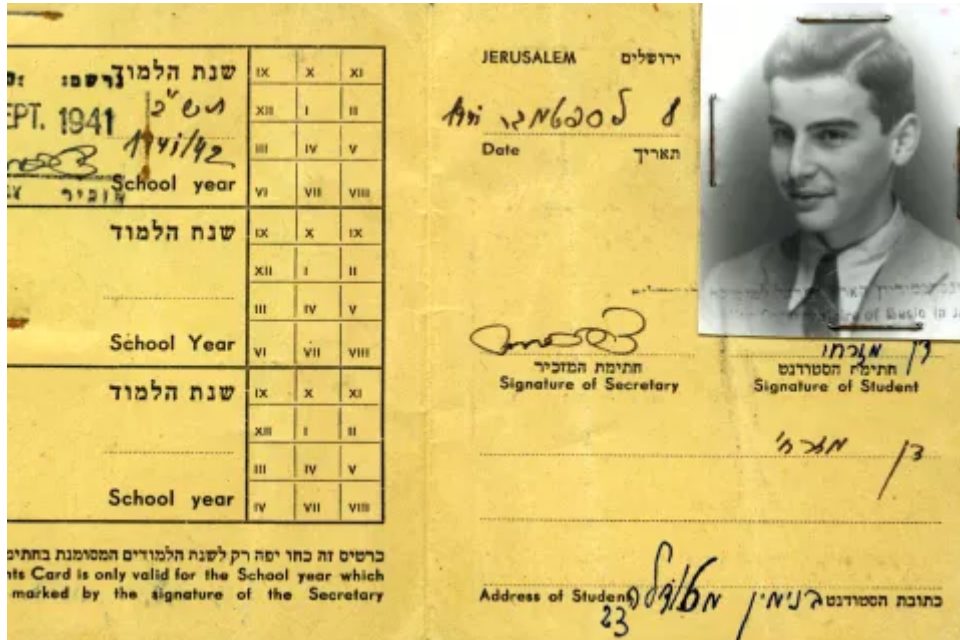 שנת הלמוד
נרשם:
תש"ב
SEPT. 1941
1941/42
School year
מזכיר
IX X XI
XII I II
III IV V
VI VII VIII
שנת הלמוד
School Year
IX X IX
XII I II
III IV V
VI VII VIII
שנת הלמוד
School year
IX X XI
XII I II
III IV V
IV VII VIII
כרטיס זה כחו יפה רק לשנת הלמודים המסומנת בחתימ
nts Card is only valid for the School year which
marked by the signature of the Secretary
JERUSALEM ירושלים
8 לספטמבר 1941
Date תאריך
of Music in
חתימת המזכיר
Signature of Secretary
דן מזרחי
חתימת הסטודנט
Signature of Student
דן מזרחי
Address of Student בנימין מטודלה כתובת הסטודנט
23